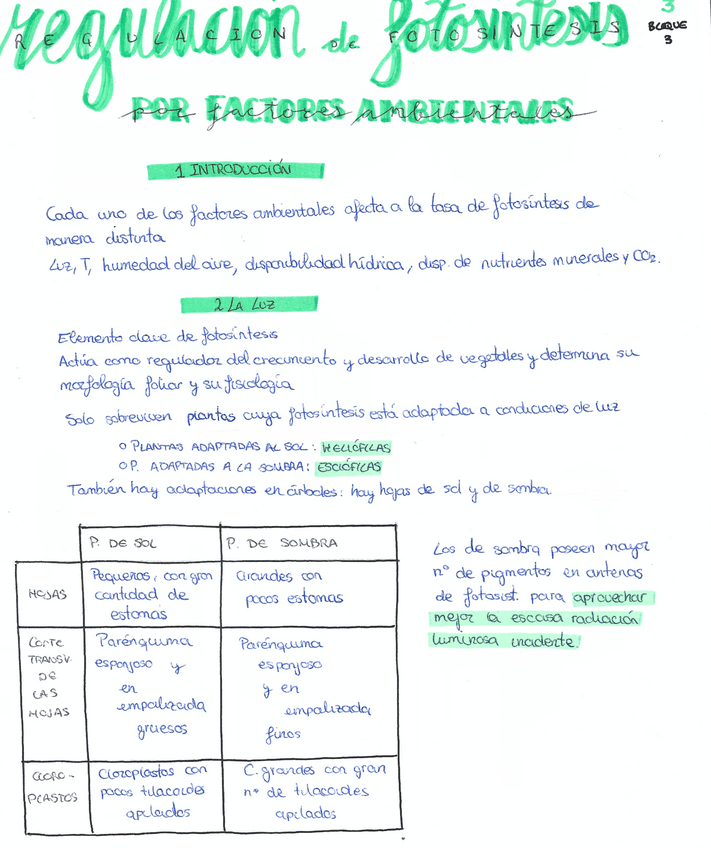 regulación de fotosíntesis
REGULACION DE FOTOSINTESIS
3
BLOQUE
3
POR FACTORES AMBIENTALES
por factores ambientales
1 INTRODUCCIÓN
Cada uno de los factores ambientales afecta a la tasa de fotosíntesis de
manera distinta
Luz, T, humedad del aire, disponibilidad hídrica, disp. de nutrientes minerales y CO2.
2 LA LUZ
Elemento clave de fotosíntesis
Actúa como regulador del crecimiento y desarrollo de vegetales y determina su
morfología foliar y su fisiología
Solo sobreviven plantas cuya fotosíntesis está adaptada a condiciones de luz
o PLANTAS ADAPTADAS AL SOL: HELIÓFILAS
o P. ADAPTADAS A LA SOMBRA: ESCIÓFILAS
También hay adaptaciones en árboles: hay hojas de sol y de sombra.
P. DE SOL
P. DE SOMBRA
HOJAS
Pequeñas, con gran
cantidad de
estomas
Grandes con
pocos estomas
CORTE
TRANSV.
DE
LAS
HOJAS
Parénquima
esponjoso y
en
empalizada
gruesos
Parénquima
esponjoso
y en
empalizada
finos
CLORO-
PLASTOS
Cloroplastos con
pocos tilacoides
apilados
C. grandes con gran
nº de tilacoides
apilados
Los de sombra poseen mayor
nº de pigmentos en antenas
de fotosist. para aprovechar
mejor la escasa radiación
luminosa incidente.